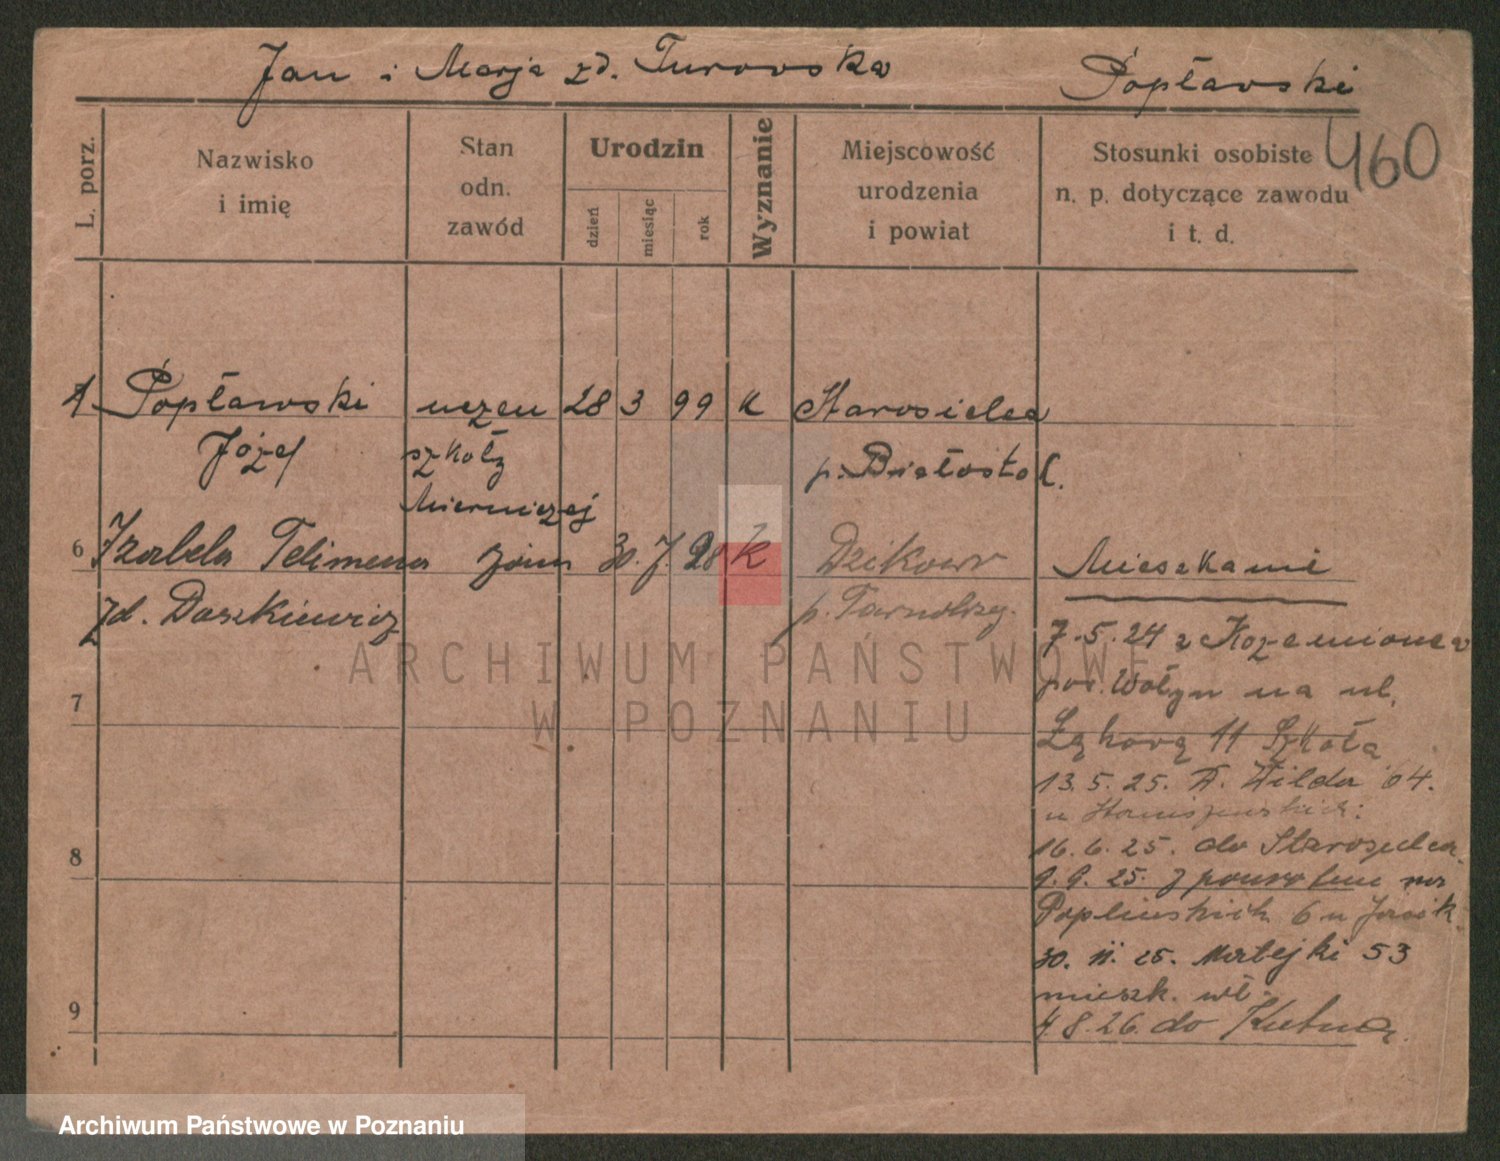 Jan i Marja zd. Turowska Popławski
460
L. porz.
Nazwisko
i imię
Stan
odn.
zawód
Urodzin
dzień
miesiąc
rok
Wyznanie
Miejscowość
urodzenia
i powiat
Stosunki osobiste
n. p. dotyczące zawodu
i t. d.
1 Popławski uczeń 28 3 99 K Starosielce
Józef szkoły p. Białostok.
Mierniczej
6 Izabela Telimena żona 30. 7. 98 K Dzików Mieszkanie
zd. Daszkiewicz p. Tarnobrzeg.
7.5.24 z
pow. Wołyn na ul.
7
Łąkową 11 Szkoła
13.5.25. Wilda 64.
u
16.6.25. do Starosielca
8
9.9.25. z powrotem na
Poplińskich 6 u
30. 11. 25. Matejki 53
mieszk. wł.
9
4.8.26. do Kutna.
ARCHIWUM PAŃSTWOWE
W POZNANIU
Archiwum Państwowe w Poznaniu